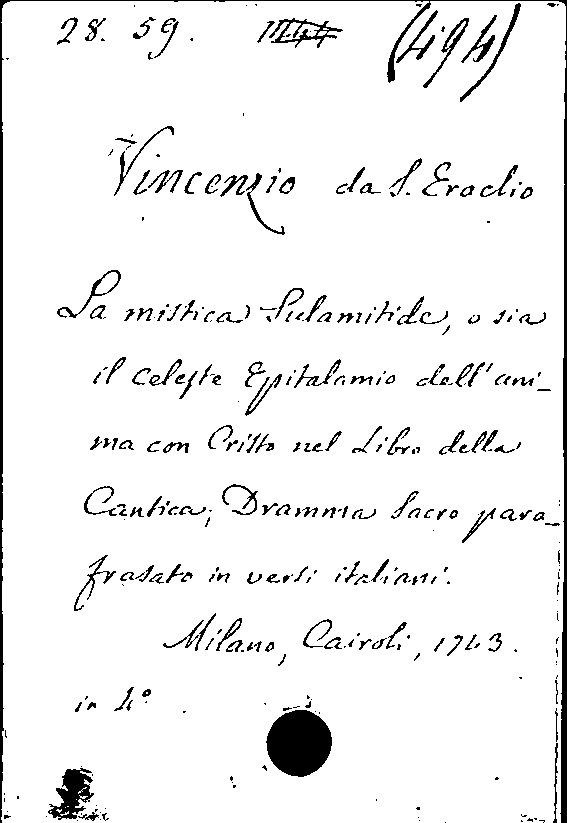 28. 59. (494)
Vincenzio da S. Eraclio
La mistica Sulamitide, o sia
il celeste Epitalamio dell'ani-
ma con Cristo nel Libro della
Cantica, Dramma Sacro para-
frasato in versi italiani.
Milano, Cairoli, 1743.
in 4º